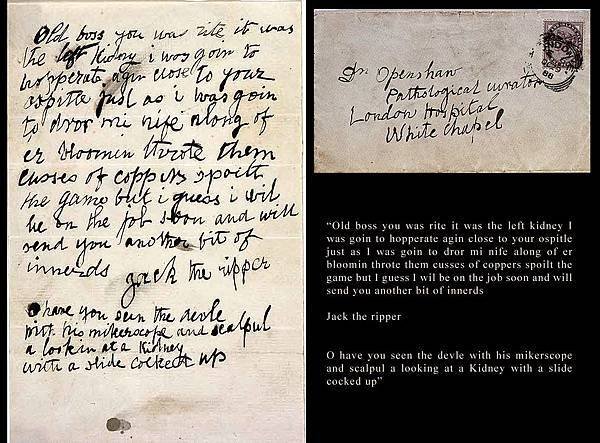 Old boss you was rite it was
the left kidny i was goin to
hopperate agin close to your
ospitle just as i was goin
to dror mi nife along of
er bloomin throte them
cusses of coppers spoilt
the game but i guess i wil
be on the job soon and will
send you another bit of
innerds
Jack the ripper
O have you seen the devle
with his mikerscope and scalpul
a lookin at a kidney
with a slide cocked up
Dr Openshaw
Pathological curator
London Hospital
White chapel
LONDON
OC 29
88
“Old boss you was rite it was the left kidney I
was goin to hopperate agin close to your ospitle
just as I was goin to dror mi nife along of er
bloomin throte them cusses of coppers spoilt the
game but I guess I wil be on the job soon and will
send you another bit of innerds
Jack the ripper
O have you seen the devle with his mikerscope
and scalpul a looking at a Kidney with a slide
cocked up”